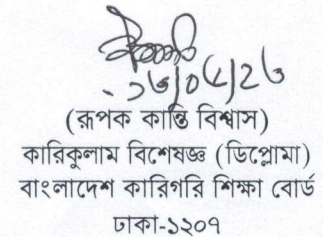 (রূপক কান্তি বিশ্বাস)
কারিকুলাম বিশেষজ্ঞ (ডিপ্লোমা)
বাংলাদেশ কারিগরি শিক্ষা বোর্ড
ঢাকা-১২০৭